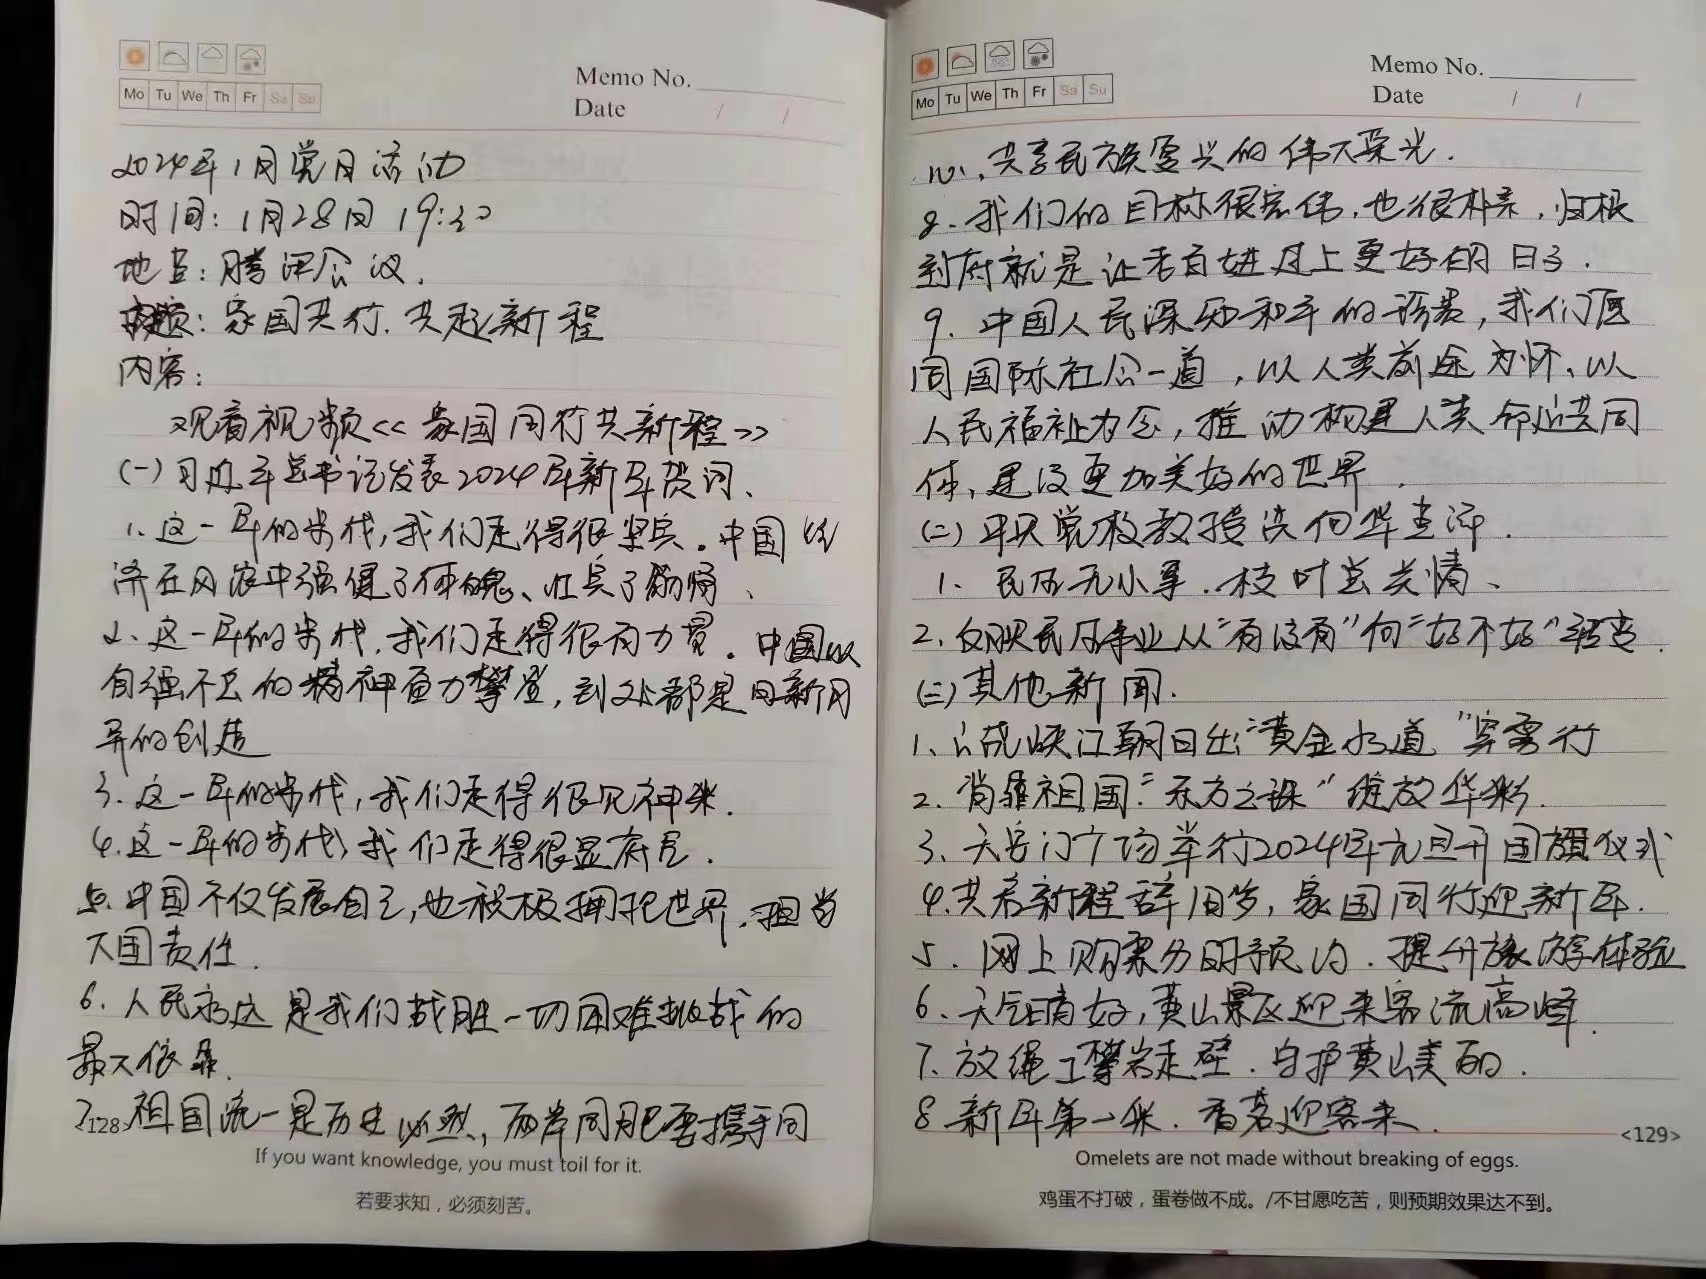 Mo Tu We Th Fr Sa Su
Memo No.
Date / /
2024年1月党日活动
时间：1月28日 19:30
地点：腾讯会议．
主题：家国共行．共赴新程
内容：
观看视频<<家国同行共新程>>
(一)习近平总书记发表2024年新年贺词、
1、这一年的步伐，我们走得很坚实。中国经
济在风浪中强健了体魄、壮实了筋骨、
2、这一年的步伐．我们走得很有力量。中国以
自强不息的精神奋力攀登，到处都是日新月
异的创造
3．这一年的步伐，我们走得很见神采．
4．这一年的步伐，我们走得很显底气．
5．中国不仅发展自己，也积极拥抱世界．担当
大国责任．
6．人民永远是我们战胜一切困难挑战的
最大依靠．
7．祖国统一是历史必然，两岸同胞要携手同
<128>
If you want knowledge, you must toil for it.
若要求知，必须刻苦。
Mo Tu We Th Fr Sa Su
Memo No.
Date / /
心，共享民族复兴的伟大荣光．
8．我们的目标很宏伟．也很朴素．归根
到底就是让老百姓过上更好的日子．
9．中国人民深知和平的珍贵，我们愿
同国际社会一道，以人类前途为怀、以
人民福祉为念，推动构建人类命运共同
体，建设更加美好的世界．
(二)党校教授
1、民生无小事．枝叶总关情、
2．民生事业从“有没有”向“好不好”转变．
(三)其他新闻．
1、峡江朝日出“黄金水道”穿雾行
2．背靠祖国“东方之珠”绽放华彩．
3、天安门广场举行2024年元旦升国旗仪式
4．共启新程辞旧岁，家国同行迎新年．
5．网上购票分时预约．提升旅游体验
6．天气晴好，黄山景区迎来客流高峰．
7．放绳工攀岩走壁．守护黄山美丽．
8新年第一粲．香茗迎客来．
<129>
Omelets are not made without breaking of eggs.
鸡蛋不打破，蛋卷做不成。/不甘愿吃苦，则预期效果达不到。